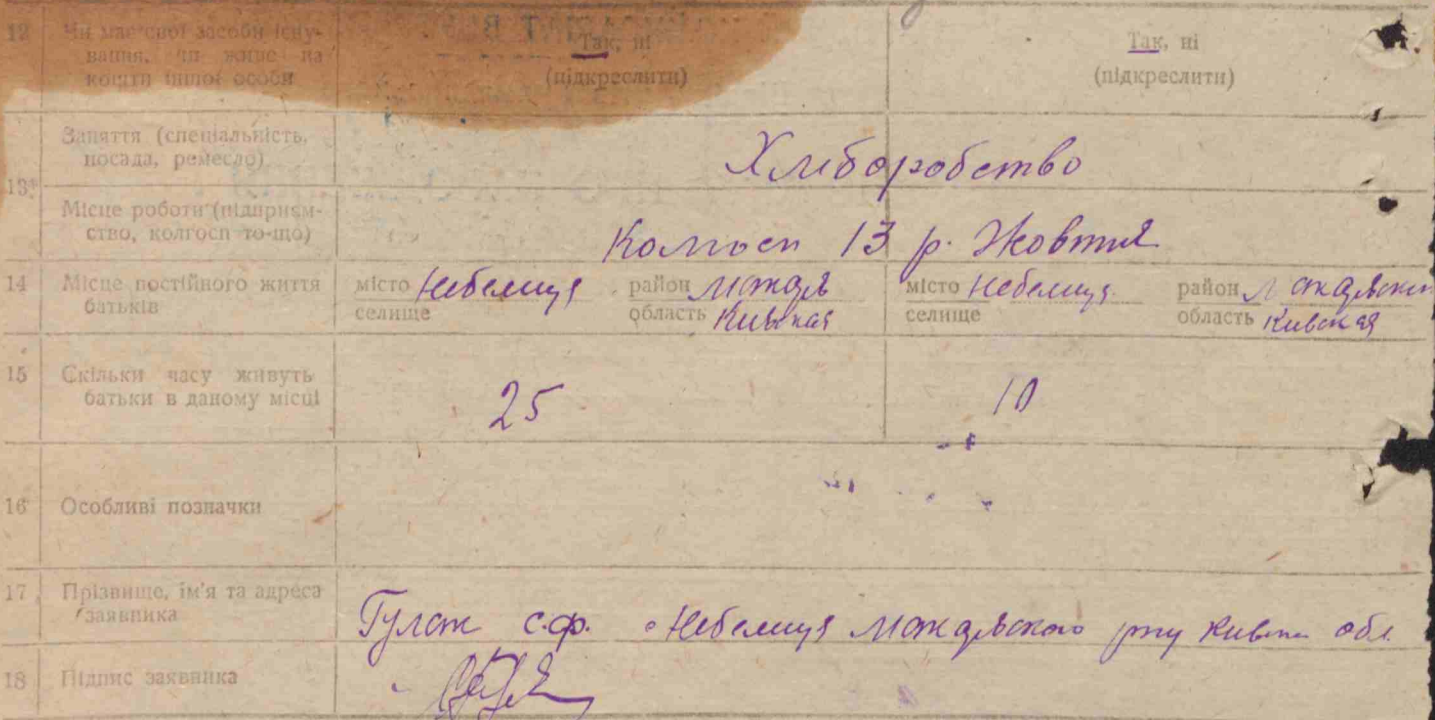 12 Чи має свої засоби існу-
вання, чи живе на
кошти іншої особи
Так, ні
(підкреслити)
Так, ні
(підкреслити)
13 Заняття (спеціальність,
посада, ремесло)
Хліборобство
Місце роботи (підприєм-
ство, колгосп то-що)
Колгосп 13 р. Жовтня
14 Місце постійного життя
батьків
місто Небелиця район Макарів
селище область Київская
місто Небелиця район
селище область Київская
15 Скільки часу живуть
батьки в даному місці
25 10
16 Особливі позначки
17 Прізвище, ім'я та адреса
заявника
Гулак С.Ф. Небелиця Макарівского р-ну обл.
18 Підпис заявника